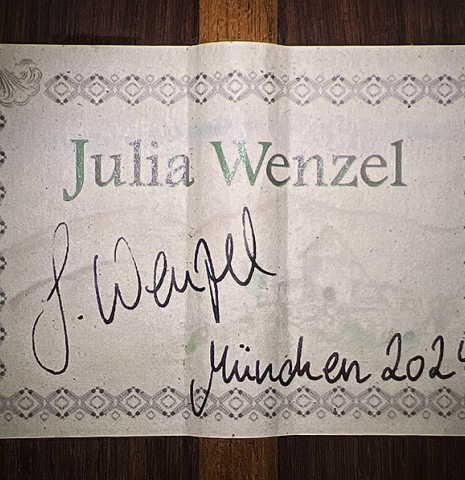 Julia Wenzel
J. Wenzel
München 2024